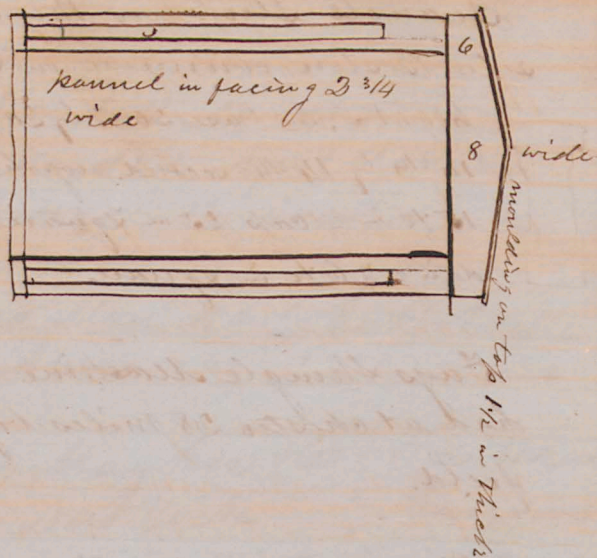 pannel in facing 2 3/4
wide
6
8 wide
moulding on top 1 1/2 in thick